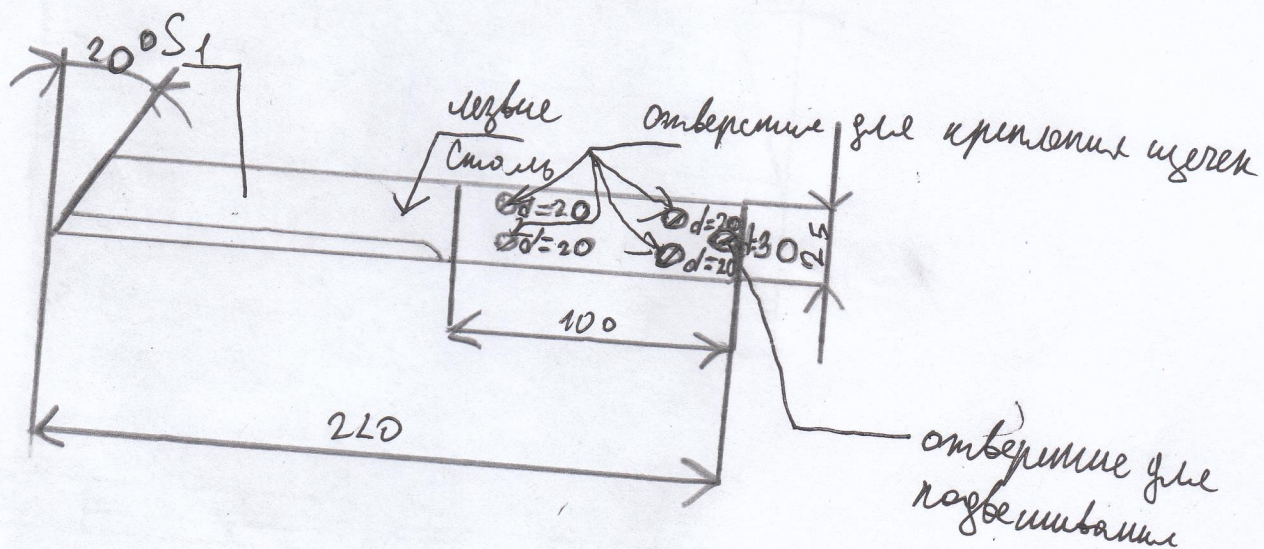 20°
S1
лезвие
отверстие для крепления щечек
Сталь
d=20
d=20
d=20
d=20
d=30
25
100
220
отверстие для
подвешивания